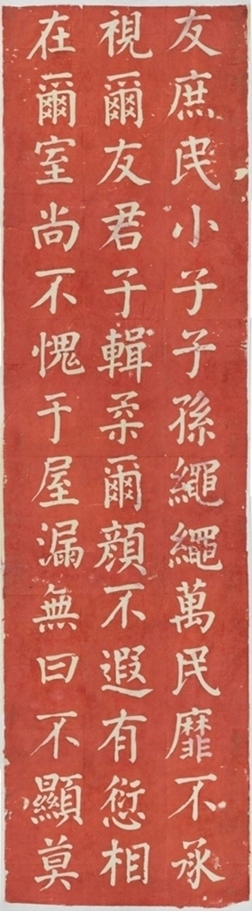 友庶民小子子孫繩繩萬民靡不承
視爾友君子輯柔爾顏不遐有愆相
在爾室尚不愧于屋漏無曰不顯莫